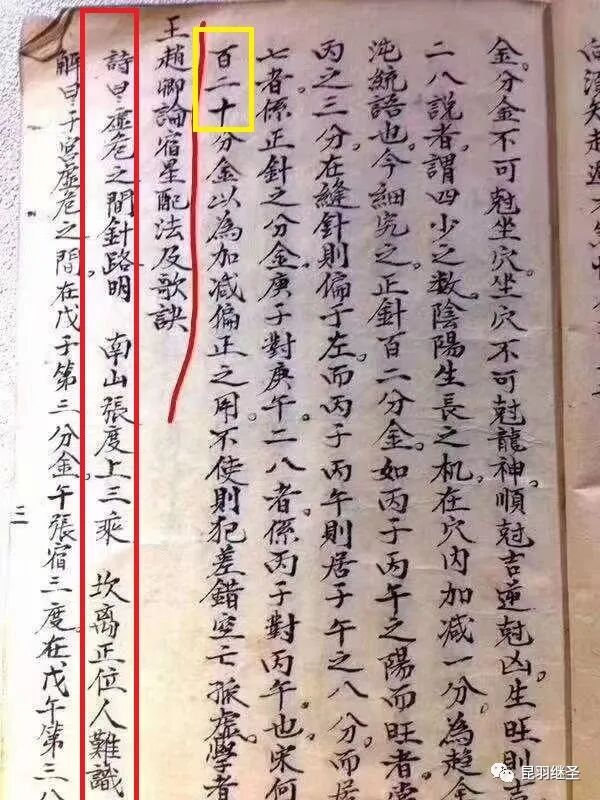 向須知趨避不
金。分金不可尅坐穴。坐穴不可尅龍神。順尅吉逆尅凶。生旺則
二八說者。謂四少之数。陰陽生長之机。在穴內加減一分。為趨全
沌統語也。今細究之。正針百二分金。如丙子丙午之陽而旺者。
丙之三分。在縫針則偏于左。而丙子丙午則居子午之八分。而居
七者。係正針之分金。庚子對庚午。二八者。係丙子對丙午也。宋何
百二十分金以為加減偏正之用。不使則犯差錯空亡孤虛。學者
王趙卿論宿星配法及歌訣
詩曰虛危之間針路明 南山張度上三乘 坎离正位人難識
解曰子宮虛危之間。在戊子第三分金。午張宿三度。在戊午第三
二
昆羽继圣